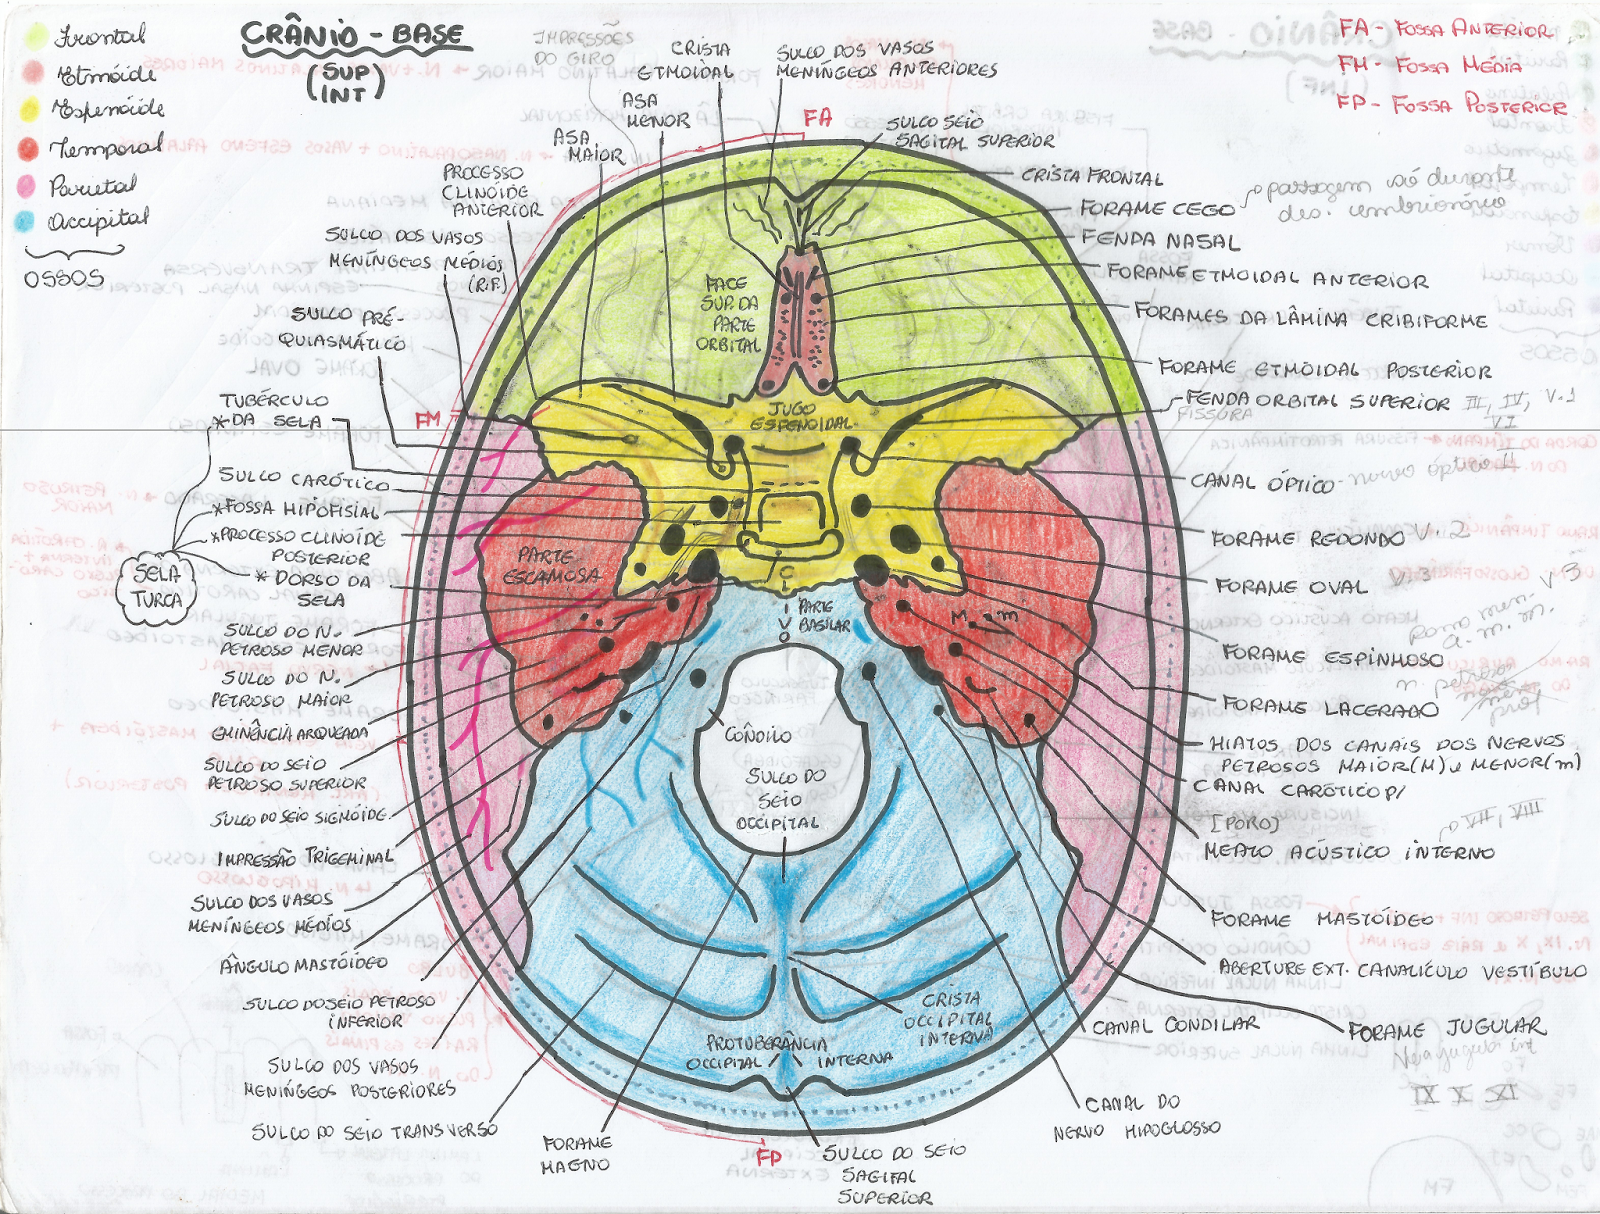 Frontal
Etmóide
Espenóide
Temporal
Parietal
Occipital
OSSOS
CRÂNIO - BASE
(SUP
INT)
IMPRESSÕES
DO GIRO
CRISTA
ETMOIDAL
SULCO DOS VASOS
MENÍNGEOS ANTERIORES
FA - FOSSA ANTERIOR
FM - FOSSA MÉDIA
FP - FOSSA POSTERIOR
ASA
MENOR
ASA
MAIOR
FA
SULCO SEIO
SAGITAL SUPERIOR
PROCESSO
CLINÓIDE
ANTERIOR
SULCO DOS VASOS
MENÍNGEOS MÉDIOS
(R.F.)
SULCO PRÉ-
QUIASMÁTICO
TUBÉRCULO
* DA SELA
FM
SULCO CARÓTICO
* FOSSA HIPOFISIAL
* PROCESSO CLINÓIDE
POSTERIOR
* DORSO DA
SELA
SELA
TURCA
SULCO DO N.
PETROSO MENOR
SULCO DO N.
PETROSO MAIOR
EMINÊNCIA ARQUEADA
SULCO DO SEIO
PETROSO SUPERIOR
SULCO DO SEIO SIGMÓIDE
IMPRESSÃO TRIGEMINAL
SULCO DOS VASOS
MENÍNGEOS MÉDIOS
ÂNGULO MASTÓIDEO
SULCO DO SEIO PETROSO
INFERIOR
SULCO DOS VASOS
MENÍNGEOS POSTERIORES
SULCO DO SEIO TRANSVERSO
FORAME
MAGNO
FP
SULCO DO SEIO
SAGITAL
SUPERIOR
FACE
SUP. DA
PARTE
ORBITAL
JUGO
ESFENOIDAL
PARTE
ESCAMOSA
C
L
I
V
O
PARTE
BASILAR
M m
CÔNDILO
SULCO DO
SEIO
OCCIPITAL
CRISTA
OCCIPITAL
INTERNA
PROTUBERÂNCIA
OCCIPITAL INTERNA
CRISTA FRONTAL
FORAME CEGO
passagem só durante
des. embrionário
FENDA NASAL
FORAME ETMOIDAL ANTERIOR
FORAMES DA LÂMINA CRIBIFORME
FORAME ETMOIDAL POSTERIOR
FENDA ORBITAL SUPERIOR III, IV, V.1
FISSURA VI
CANAL ÓPTICO - nervo óptico II
FORAME REDONDO V.2
FORAME OVAL V.3
FORAME ESPINHOSO
FORAME LACERADO
n. petroso
prof
HIATOS DOS CANAIS DOS NERVOS
PETROSOS MAIOR (M) e MENOR (m)
CANAL CARÓTICO P/
[PORO]
MEATO ACÚSTICO INTERNO
FORAME MASTÓIDEO
ABERTURE EXT. CANALÍCULO VESTÍBULO
CANAL CONDILAR
FORAME JUGULAR
Veia jugular int
IX X XI
CANAL DO
NERVO HIPOGLOSSO